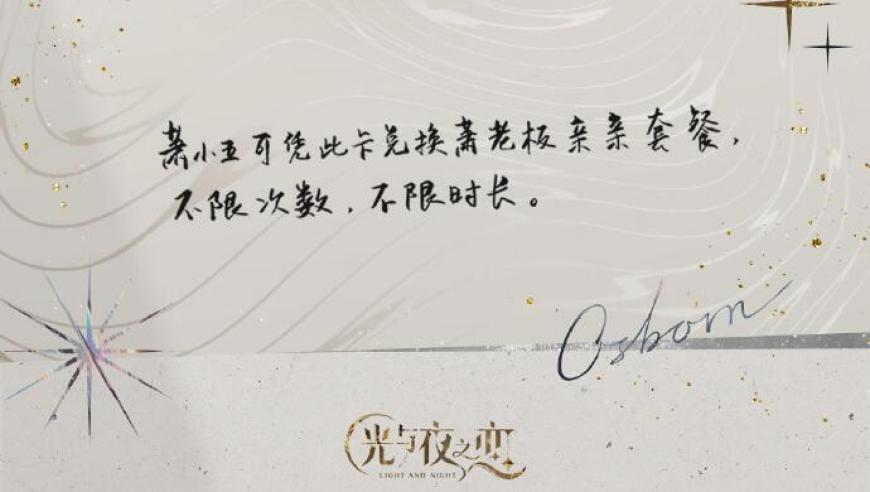 萧小五可凭此卡兑换萧老板亲亲套餐，
不限次数，不限时长。
Osborn
光与夜之恋
LIGHT AND NIGHT